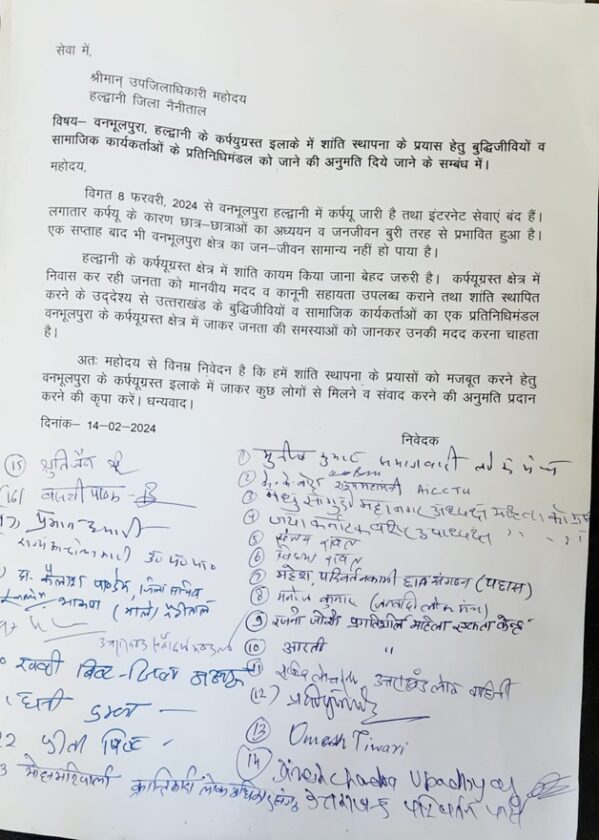 सेवा में,
श्रीमान् उपजिलाधिकारी महोदय
हल्द्वानी जिला नैनीताल
विषय– वनभूलपुरा, हल्द्वानी के कर्फ्युग्रस्त इलाके में शांति स्थापना के प्रयास हेतु बुद्धिजीवियों व
सामाजिक कार्यकर्ताओं के प्रतिनिधिमंडल को जाने की अनुमति दिये जाने के सम्बंध में।
महोदय,
विगत 8 फरवरी, 2024 से वनभूलपुरा हल्द्वानी में कर्फ्यू जारी है तथा इंटरनेट सेवाएं बंद हैं।
लगातार कर्फ्यू के कारण छात्र–छात्राओं का अध्ययन व जनजीवन बुरी तरह से प्रभावित हुआ है।
एक सप्ताह बाद भी वनभूलपुरा क्षेत्र का जन–जीवन सामान्य नहीं हो पाया है।
हल्द्वानी के कर्फ्यूग्रस्त क्षेत्र में शांति कायम किया जाना बेहद जरुरी है। कर्फ्यूग्रस्त क्षेत्र में
निवास कर रही जनता को मानवीय मदद व कानूनी सहायता उपलब्ध कराने तथा शांति स्थापित
करने के उद्देश्य से उत्तराखंड के बुद्धिजीवियों व सामाजिक कार्यकर्ताओं का एक प्रतिनिधिमंडल
वनभूलपुरा के कर्फ्यूग्रस्त क्षेत्र में जाकर जनता की समस्याओं को जानकर उनकी मदद करना चाहता
है।
अतः महोदय से विनम्र निवेदन है कि हमें शांति स्थापना के प्रयासों को मजबूत करने हेतु
वनभूलपुरा के कर्फ्यूग्रस्त इलाके में जाकर कुछ लोगों से मिलने व संवाद करने की अनुमति प्रदान
करने की कृपा करें। धन्यवाद।
दिनांक– 14-02-2024
निवेदक
1 मुनीष कुमार समाजवादी लोक मंच
2 के. के. बोरा AICCTU
3 महानगर अध्यक्ष महिला
4 उपाध्यक्ष
5
6
7 महेश, परिवर्तनकामी छात्र संगठन (पछास)
8 मनोज कुमार (जनवादी लोक मंच)
9 रजनी जोशी प्रगतिशील महिला एकता केन्द्र
10 आरती "
11 उत्तराखंड लोक वाहिनी
(12)
13 Omesh Tiwari
14 Dinesh Chandra Upadhyay
उत्तराखण्ड परिवर्तन पार्टी
15
(16) पाठक
डा. कैलाश पाण्डेय, जिला सचिव
भाकपा (माले) नैनीताल